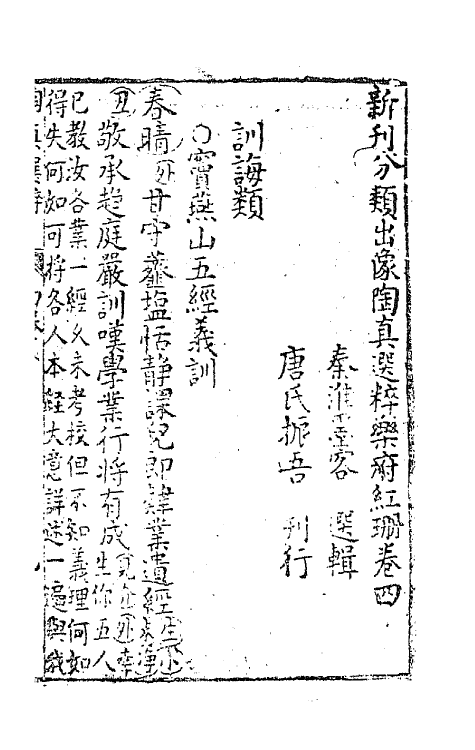 新刊分類出像陶真選粹樂府紅珊卷四
秦淮墨客 選輯
唐氏振吾 刊行
訓誨類
○竇燕山五經義訓
春晴外甘守虀塩恬靜課兒郎肄業遺經生小
丑敬承趍庭嚴訓嘆學業行將有成見介外
生你五人
已教汝各業一經久未考校但不知義理何如
得失何如可將各人本經大意詳述一遍與我